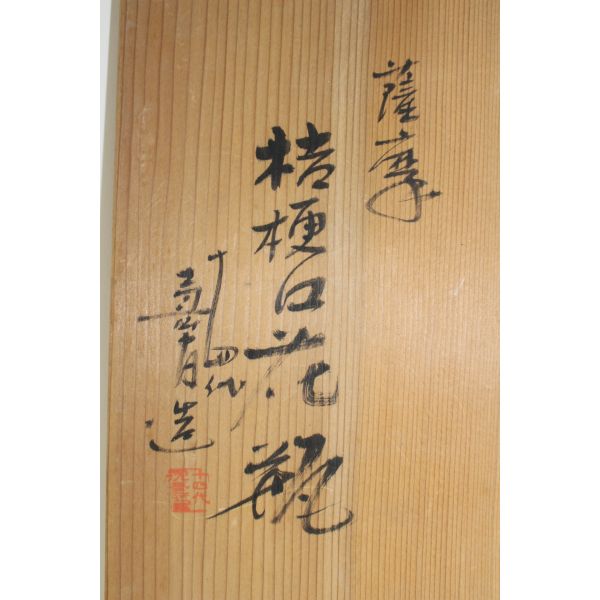 薩摩
桔梗口花瓶
十四代
壽官造